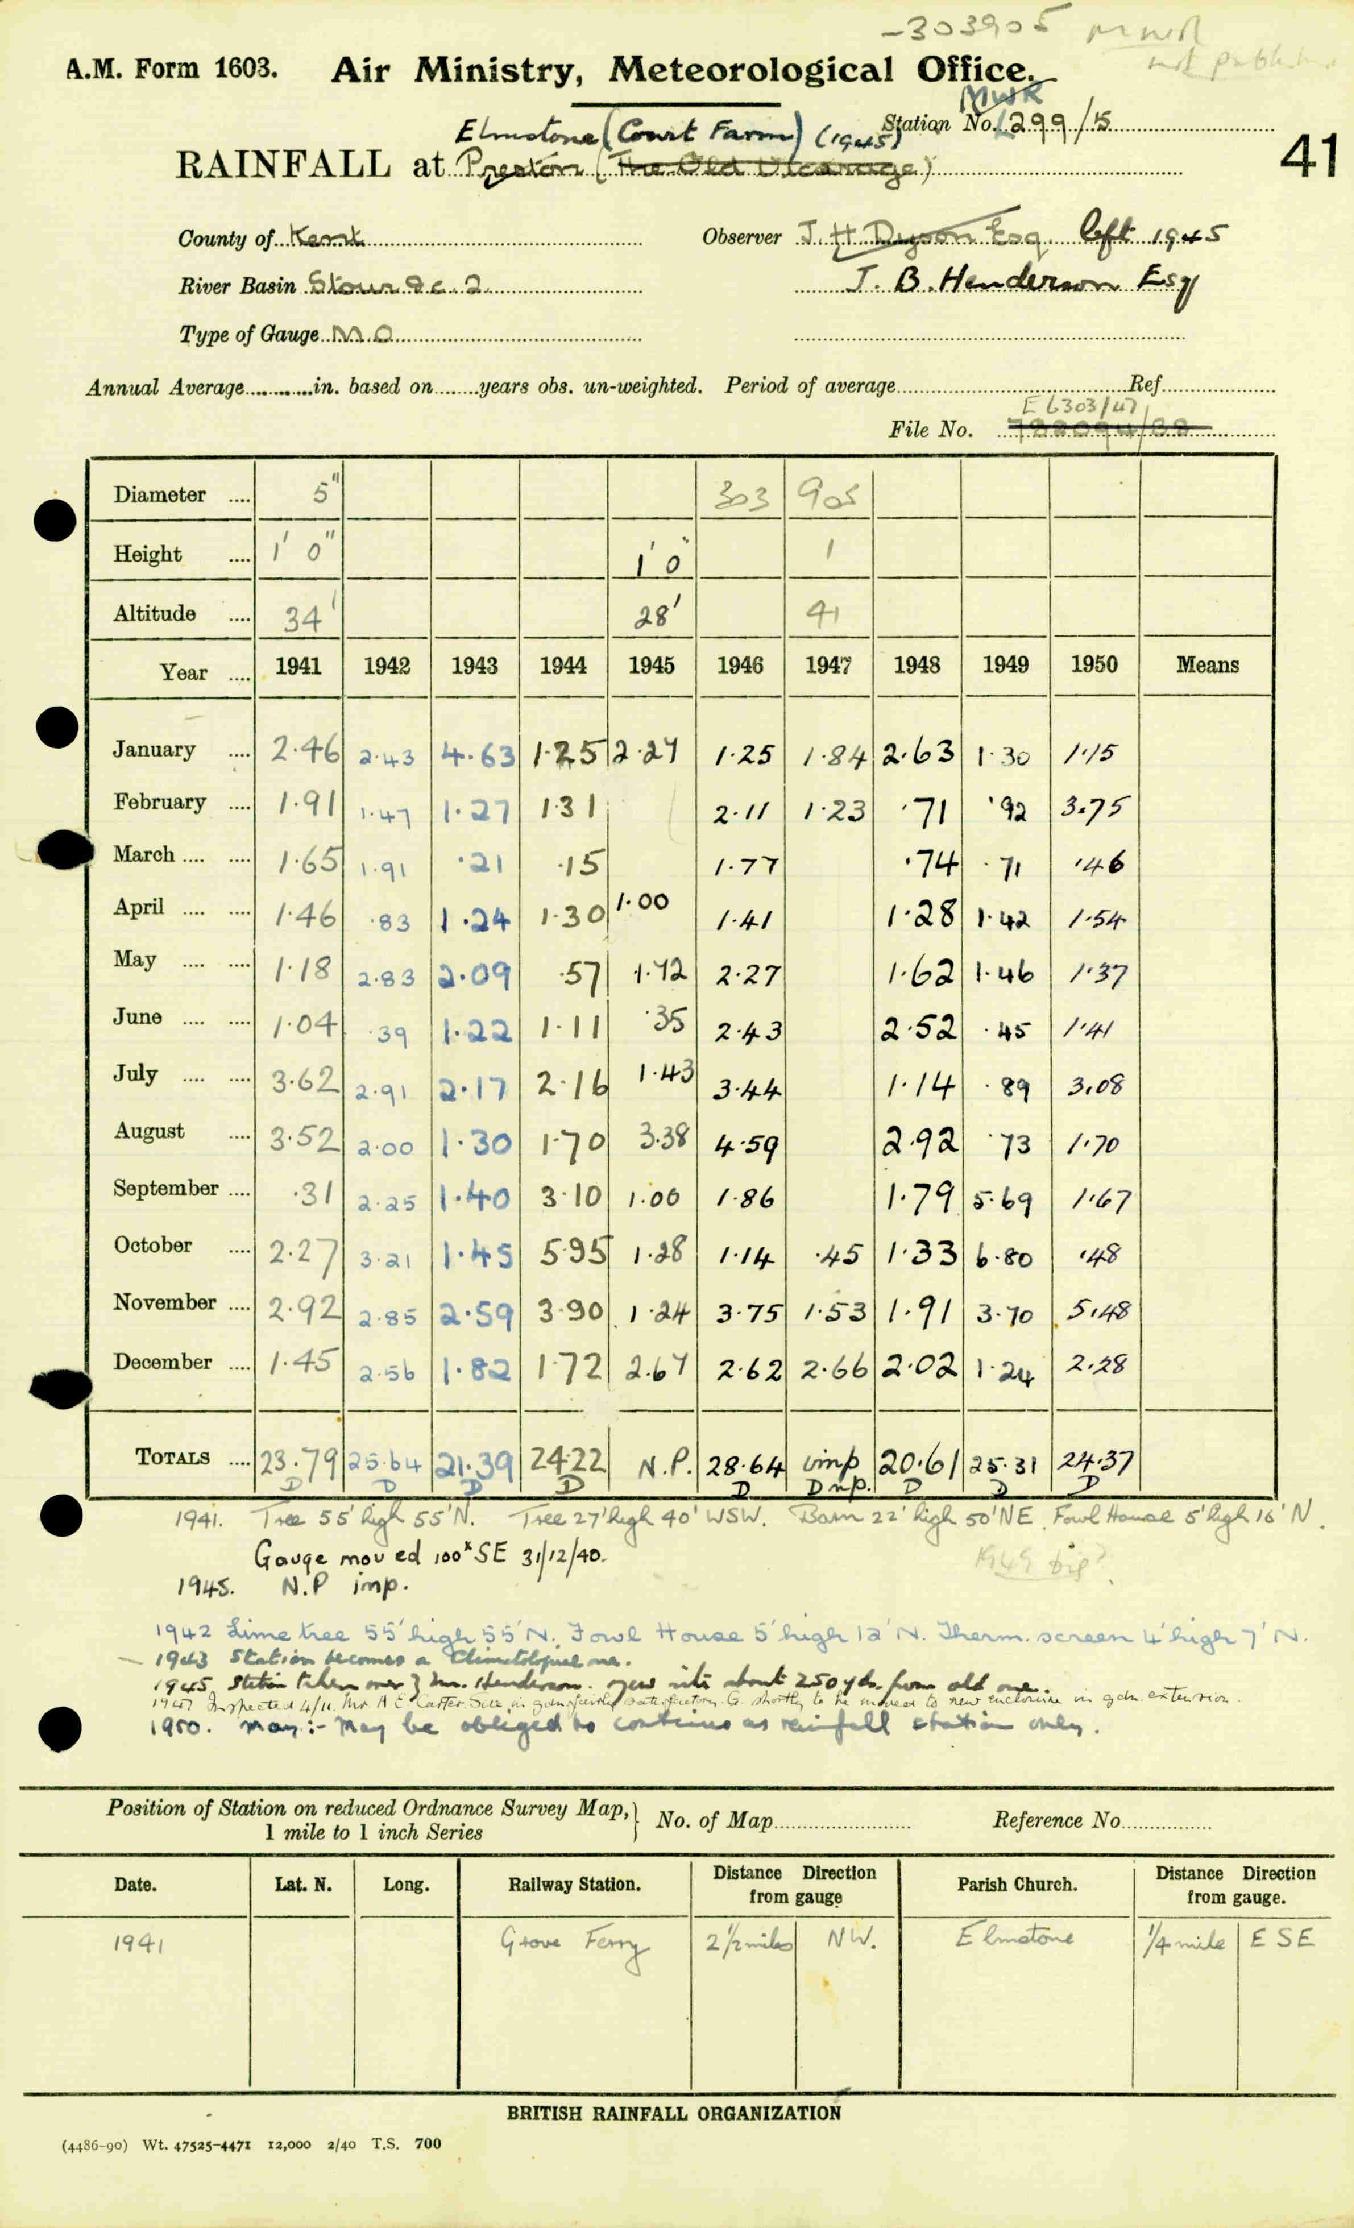 -303905 MWR
not published
A.M. Form 1603. Air Ministry, Meteorological Office.
MWR
Elmstone (Court Farm) (1945) Station No. 299/15
RAINFALL at Preston (The Old Vicarage) 41
County of Kent Observer J. H Dyson Esq. left 1945
River Basin Stour &c. 2 J. B. Henderson Esq
Type of Gauge M.O
Annual Average............in. based on.......years obs. un-weighted. Period of average.......... Ref..........
E 6303/47
File No. 722094/32
Diameter .... 5" 303 905
Height .... 1' 0" 1' 0" 1
Altitude .... 34' 28' 41
Year .... 1941 1942 1943 1944 1945 1946 1947 1948 1949 1950 Means
January .... 2.46 2.43 4.63 1.25 2.27 1.25 1.84 2.63 1.30 1.15
February .... 1.91 1.47 1.27 1.31 2.11 1.23 .71 .92 3.75
March .... .... 1.65 1.91 .21 .15 1.77 .74 .71 .46
April .... .... 1.46 .83 1.24 1.30 1.00 1.41 1.28 1.42 1.54
May .... .... 1.18 2.83 2.09 .57 1.72 2.27 1.62 1.46 1.37
June .... .... 1.04 .39 1.22 1.11 .35 2.43 2.52 .45 1.41
July .... .... 3.62 2.91 2.17 2.16 1.43 3.44 1.14 .89 3.08
August .... 3.52 2.00 1.30 1.70 3.38 4.59 2.92 .73 1.70
September .... .31 2.25 1.40 3.10 1.00 1.86 1.79 5.69 1.67
October .... 2.27 3.21 1.45 5.95 1.28 1.14 .45 1.33 6.80 .48
November .... 2.92 2.85 2.59 3.90 1.24 3.75 1.53 1.91 3.70 5.48
December .... 1.45 2.56 1.82 1.72 2.67 2.62 2.66 2.02 1.24 2.28
TOTALS .... 23.79 25.64 21.39 24.22 N.P. 28.64 imp 20.61 25.31 24.37
D D D D D D n.p. D D D
1941. Tree 55' high 55' N. Tree 27' high 40' WSW. Barn 22' high 50' NE. Fowl House 5' high 16' N.
Gauge moved 100x SE 31/12/40. 1949 big?
1945. N.P imp.
1942 Lime tree 55' high 55' N. Fowl House 5' high 12' N. Therm. screen 4' high 7' N.
1943 Station becomes a Climatological one.
1945 Station taken over by Mr. Henderson. New site about 250 yds. from old one.
1947 Inspected 4/11 Mr A E Carter. Site in gdn fairly satisfactory. G. shortly to be moved to new enclosure in gdn. extension.
1950. May:- May be obliged to continue as rainfall station only.
Position of Station on reduced Ordnance Survey Map,
1 mile to 1 inch Series
No. of Map.......... Reference No..........
Date. Lat. N. Long. Railway Station. Distance Direction from gauge Parish Church. Distance Direction from gauge.
1941 Grove Ferry 2 1/2 miles NW. Elmstone 1/4 mile ESE
BRITISH RAINFALL ORGANIZATION
(4486-90) Wt. 47525-4471 12,000 2/40 T.S. 700